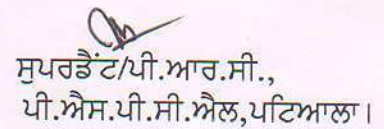 ਸੁਪਰਡੈਂਟ/ਪੀ.ਆਰ.ਸੀ.,
ਪੀ.ਐਸ.ਪੀ.ਸੀ.ਐਲ,ਪਟਿਆਲਾ।